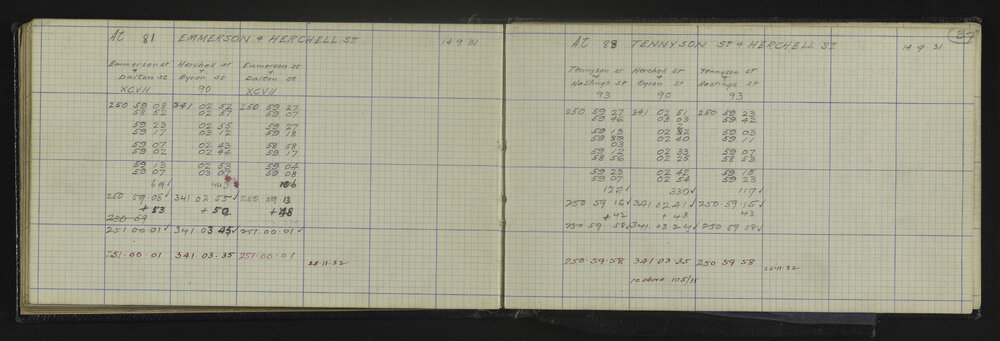 At 81 EMMERSON & HERCHELL ST 14 9 31
Emmerson st Herchell st Emmerson st
& & &
Dalton st Byron st Dalton st
XCVII 90 XCVII
250 59 08 341 02 52 250 59 27
58 52 02 57 59 07
59 23 02 55 59 27
59 17 03 12 59 18
59 07 02 43 58 58
59 02 02 44 59 17
59 12 02 53 59 04
59 07 03 07 59 08
69✓ 443 106
250 59 08✓ 341 02 55✓ 250 59 13
+ 53 + 50 + 48
250 59
251 00 01✓ 341 03 45✓ 251 00 01✓
251·00·01 341·03·35 251·00·01
22·11·32
37
At 88 TENNYSON ST & HERCHELL ST 14 9 31
Tennyson st Herchell st Tennyson st
& & &
Hastings st Byron st Hastings st
93 90 93
250 59 27 341 02 51 250 59 23
59 46 03 03 59 42
59 13 02 52 59 03
59 02 40 59 11
03
59 12 02 33 59 07
58 56 02 25 58 53
59 23 02 42 59 15
59 07 02 54 59 23
127✓ 330✓ 117✓
250 59 16✓ 341 02 41✓ 250 59 15✓
+ 42 + 43 43
250 59 58✓ 341 03 24✓ 250 59 58✓
250·59·58 341·03·35 250·59·58
22·11·32
105/15